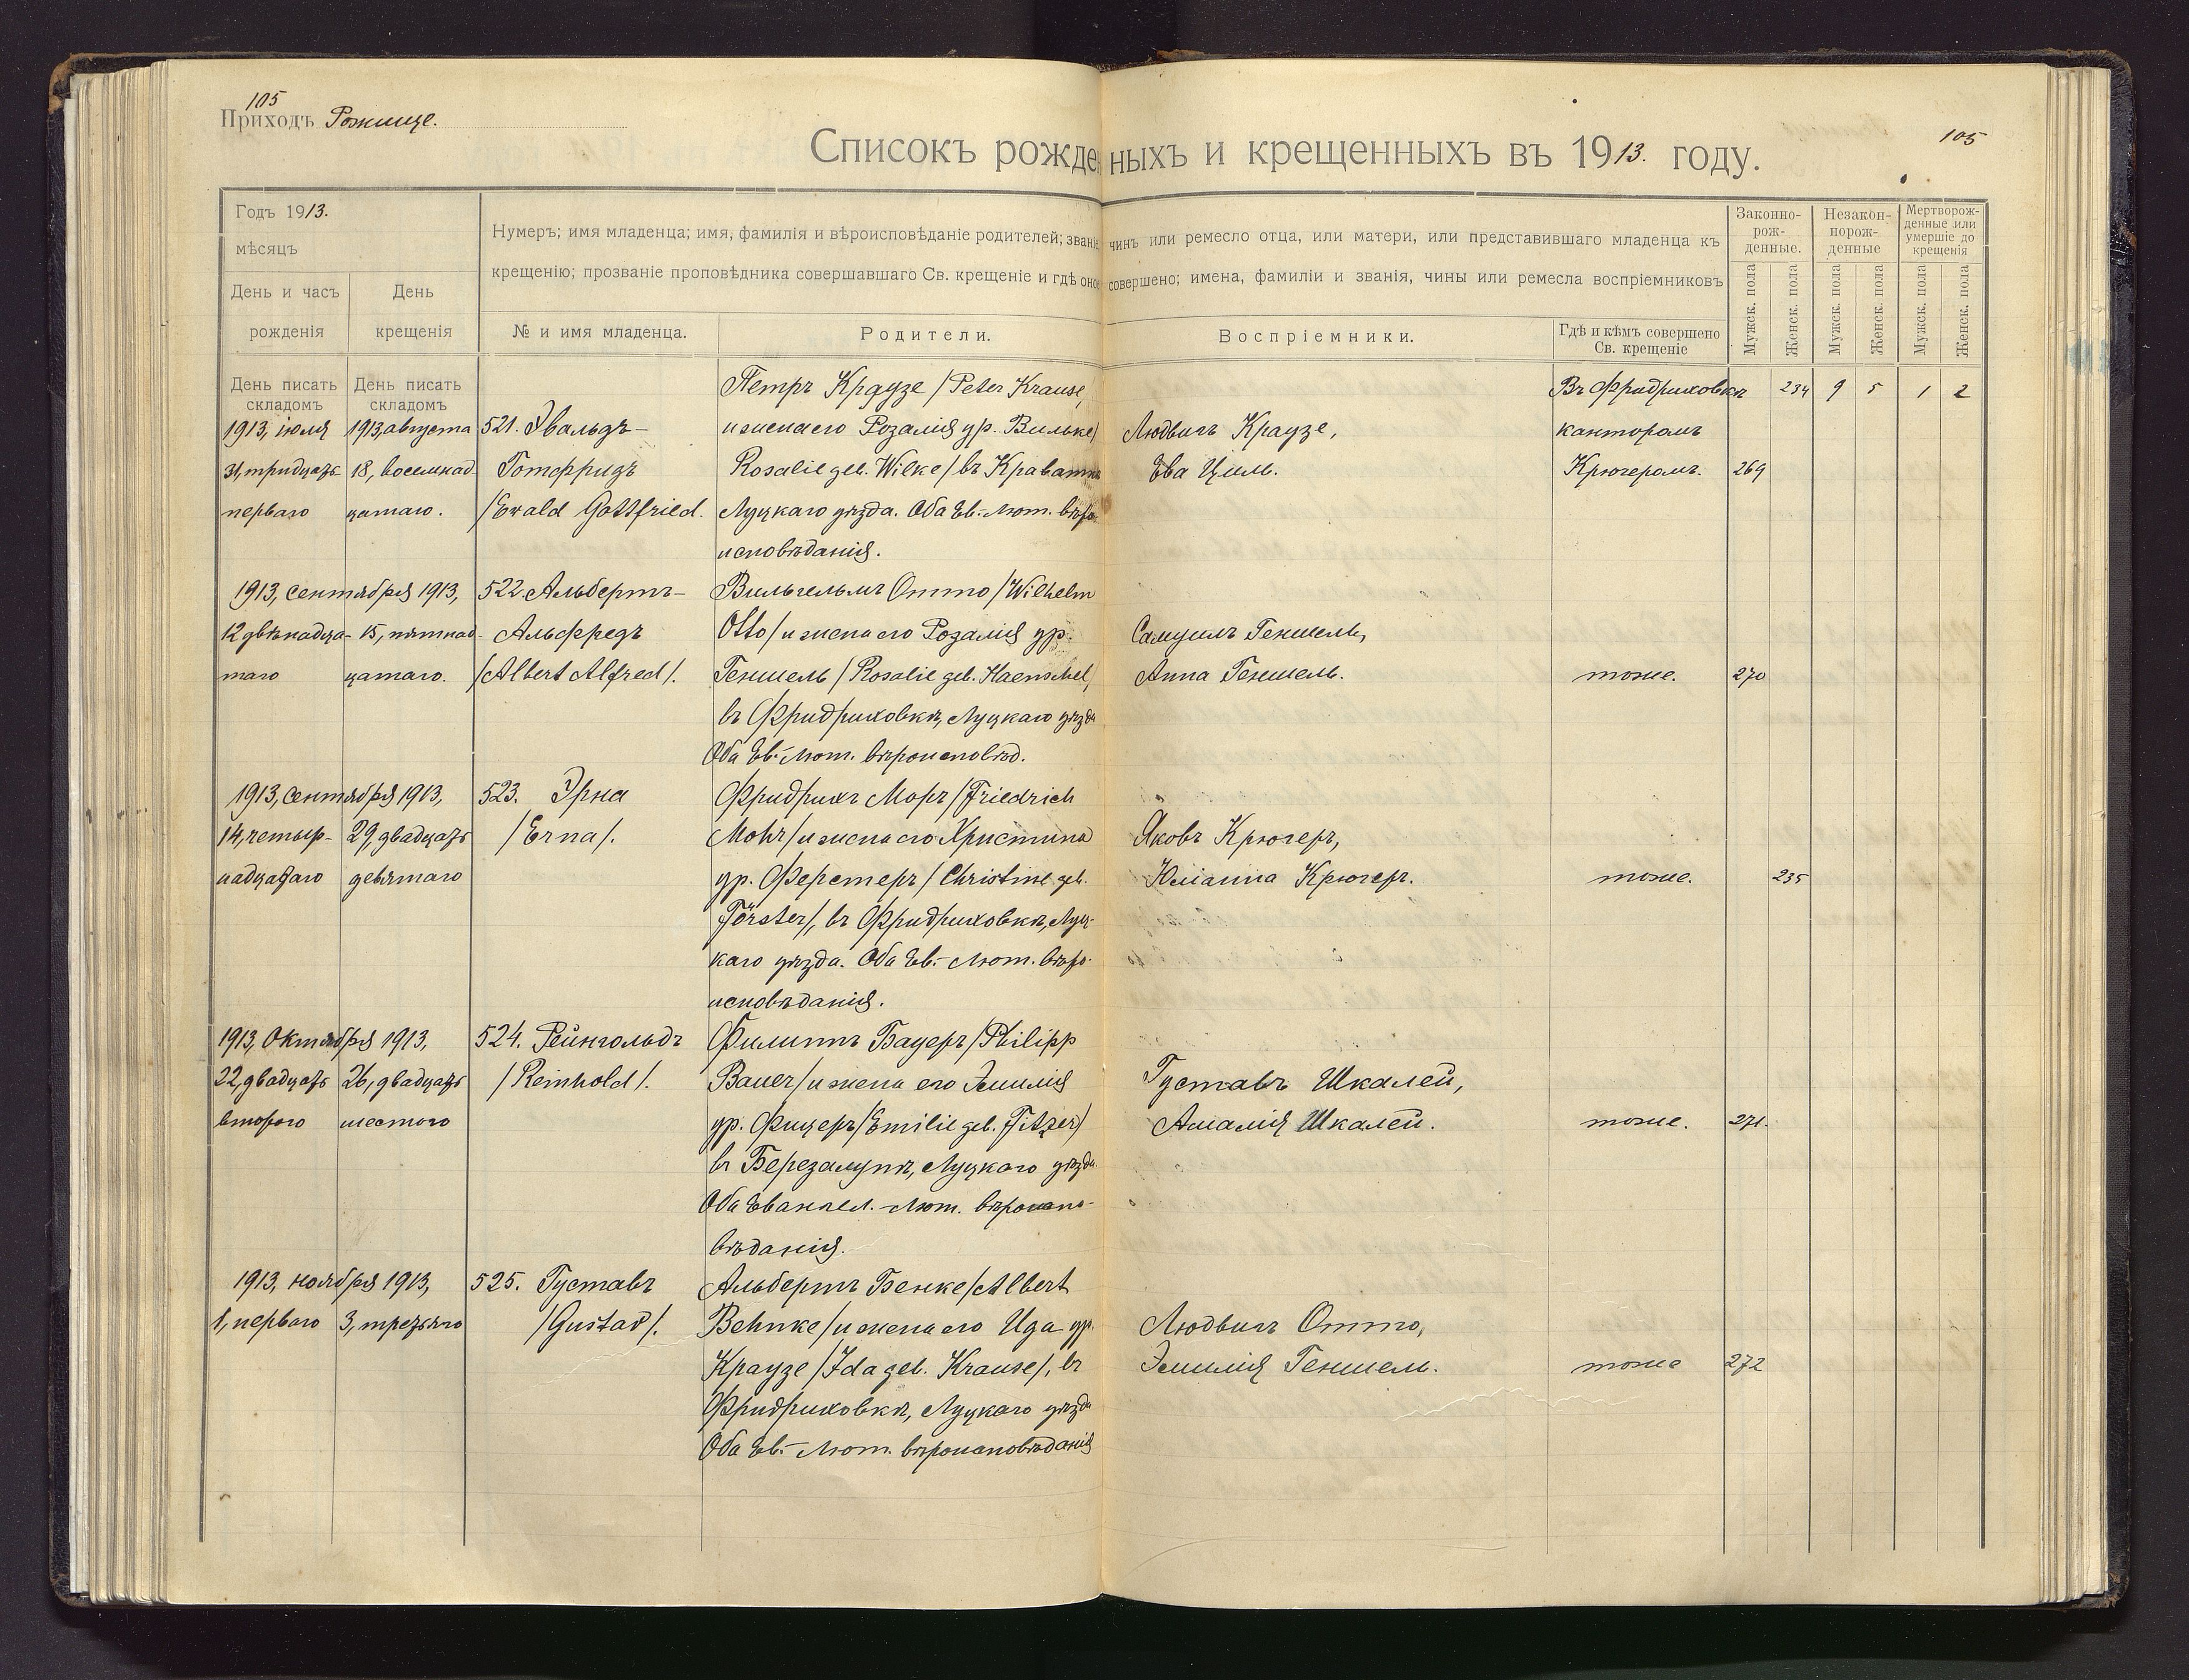 105
Приходъ Рожище.
Списокъ рожденныхъ и крещенныхъ въ 1913. году.
105
Годъ 1913.
мѣсяцъ
Нумеръ; имя младенца; имя, фамилія и вѣроисповѣданіе родителей; званіе чинъ или ремесло отца, или матери, или представившаго младенца къ
крещенію; прозваніе проповѣдника совершавшаго Св. крещеніе и гдѣ оное совершено; имена, фамиліи и званія, чины или ремесла воспріемниковъ
Законно-
рож-
денные.
Незакон-
норож-
денные
Мертворож-
денные или
умершіе до
крещенія
День и часъ
рожденія
День
крещенія
№ и имя младенца.
Родители.
Воспріемники.
Гдѣ и кѣмъ совершено
Св. крещеніе
Мужск. пола
Женск. пола
Мужск. пола
Женск. пола
Мужск. пола
Женск. пола
День писать
складомъ
День писать
складомъ
Петръ Краузе /Peter Krause, Въ Фридриховкѣ 234 9 5 1 2
1913, іюля 1913, августа 521. Эвальдъ- и жена его Розалія ур. Вильке/ Людвигъ Краузе, канторомъ
31, тридцать 18, восемнад- Готфридъ Rosalie geb. Wilke/ въ Краватка Ева Циль. Крюгеромъ. 269
перваго цатаго. /Ewald Gottfried. Луцкаго уѣзда. Оба Ев.-Лют. вѣро-
исповѣданія.
1913, сентября 1913, 522. Альбертъ- Вильгельмъ Отто /Wilhelm
12 двѣнадца- 15, пятнад- Альфредъ Otto/ и жена его Розалія ур. Самуилъ Геншель,
таго цатаго. /Albert Alfred/. Геншель /Rosalie geb. Haenschel/ Анна Геншель. тоже. 270
въ Фридриховкѣ, Луцкаго уѣзда
Оба Ев.-Лют. вѣроисповѣд.
1913, сентября 1913, 523. Эрна Фридрихъ Моръ /Friedrich
14, четыр- 29, двадцать /Erna/. Mohr/ и жена его Христина Яковъ Крюгеръ,
надцатаго девятаго ур. Ферстеръ /Christine geb. Юліанна Крюгеръ. тоже. 235
Förster/, въ Фридриховкѣ, Луц-
каго уѣзда. Оба Ев.-Лют. вѣро-
исповѣданія.
1913, Октября 1913, 524. Рейнгольдъ Филиппъ Бауеръ /Philipp
22, двадцать 26, двадцать /Reinhold/. Bauer/ и жена его Эмилія Густавъ Шкалей,
второго шестого ур. Фицеръ /Emilie geb. Fitzer/ Амалія Шкалей. тоже. 271.
въ Березалупѣ, Луцкаго уѣзда.
Оба Евангел.-Лют. вѣроиспо-
вѣданія.
1913, ноября 1913, 525. Густавъ Альбертъ Бенке /Albert
1, перваго 3, третьяго /Gustav/. Behnke/ и жена его Ида ур. Людвигъ Отто,
Краузе /Ida geb. Krause/, въ Эмилія Геншель. тоже 272
Фридриховкѣ, Луцкаго уѣзда
Оба Ев.-Лют. вѣроисповѣданія